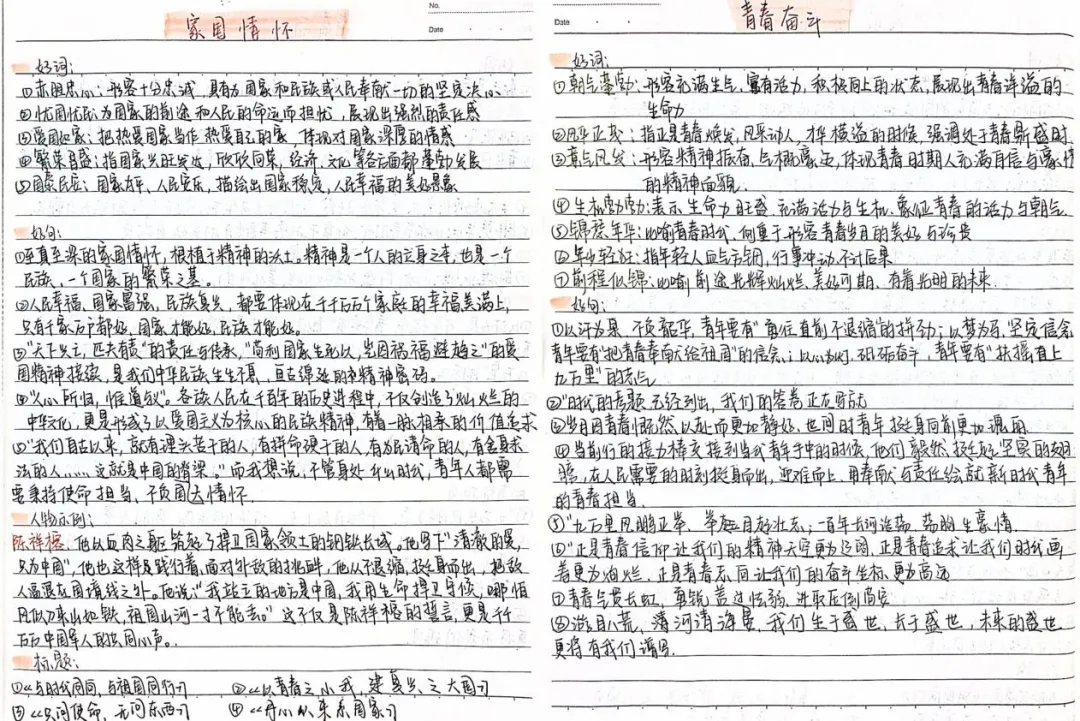 家国情怀
No.
Date
好词:
①赤胆忠心:形容十分忠诚,具有为国家和民族或人民奉献一切的坚定决心
②忧国忧民:为国家的前途和人民的命运而担忧,展现出强烈的责任感
③爱国如家:把热爱国家当作热爱自己的家,体现对国家深厚的情感
④繁荣昌盛:指国家兴旺发达,欣欣向荣,经济、文化等各方面都蓬勃发展
⑤国泰民安:国家太平,人民安乐,描绘出国家稳定,人民幸福的美好景象
好句:
①至真至深的家国情怀,根植于精神的沃土,精神是一个人的立身之本,也是一个
民族、一个国家的繁荣之基。
②人民幸福、国家富强、民族复兴,都要体现在千千万万个家庭的幸福美满上,
只有千家万户都好,国家才能好,民族才能好。
③"天下兴亡,匹夫有责"的责任与传承,"苟利国家生死以,岂因祸福避趋之"的爱
国精神接续,是我们中华民族生生不息、亘古绵延的精神密码。
④"人心所归,惟道与义"。各族人民在千百年的历史进程中,不仅创造了灿烂的
中华文化,更是形成了以爱国主义为核心的民族精神,有着一脉相承的价值追求
⑤"我们自古以来,就有埋头苦干的人,有拼命硬干的人,有为民请命的人,有舍身求
法的人……这就是中国的脊梁。"而我想说,不管身处什么时代,青年人都需
要秉持使命担当、不负家国情怀.
人物示例:
陈祥榕 他以血肉之躯筑起了捍卫国家领土的钢铁长城。他写下"清澈的爱,
只为中国",他也这样去践行着,面对外敌的挑衅,他从不退缩,挺身而出,把敌
人逼退在国境线之外。他说:"我站立的地方是中国,我用生命捍卫守候,哪怕
风似刀来山似铁,祖国山河一寸不能丢。"这不仅是陈祥榕的誓言,更是千千
万万中国军人的共同心声。
标题:
①《与时代同向,与祖国同行》 ②《以青春之小我,建复兴之大国》
③《只问使命,无问东西》 ④《丹心从来系国家》
青春奋斗
Date
好词:
①朝气蓬勃:形容充满生气、富有活力,积极向上的状态,展现出青春洋溢的
生命力
②风华正茂:指正是青春焕发,风采动人,才华横溢的时候,强调处于青春鼎盛时
③意气风发:形容精神振奋,气概豪迈,体现青春时期人充满自信与豪情
的精神面貌.
④生机勃勃:表示生命力旺盛,充满活力与生机,象征青春的活力与朝气
⑤锦瑟年华:比喻青春时代,侧重于形容青春岁月的美好与珍贵
⑥年少轻狂:指年轻人血气方刚,行事冲动,不计后果
⑦前程似锦:比喻前途光辉灿烂,美好可期,有着光明的未来
好句:
①以汗为墨,不负韶华,青年要有"勇往直前不退缩"的拼劲;以梦为马,坚定信念
青年要有"把青春奉献给祖国"的信念;以心为灯,砥砺奋斗,青年要有"扶摇直上
九万里"的志气
②"时代的考题已经列出,我们的答卷正在写就
③岁月因青春慨然以赴而更加静好,世间因青年挺身向前更加瑰丽
④当前行的接力棒交接到当代青年手中的时候,他们毅然挺起坚实的翅
膀,在人民需要的时刻挺身而出,迎难而上,用奉献与责任绘就新时代青年
的青春担当.
⑤"九万里风鹏正举,举起目好壮志;一百年长河浩荡,荡胸生豪情
⑥"正是青春信仰让我们的精神天空更为辽阔,正是青春追求让我们时代画
卷更为绚烂,正是青春志向让我们的奋斗坐标更为高远
⑦青春气贯长虹,勇锐盖过怯弱,进取压倒苟安
⑧海目八荒,濂河清海晏,我们生于盛世,长于盛世,未来的盛世
更将有我们谱写.